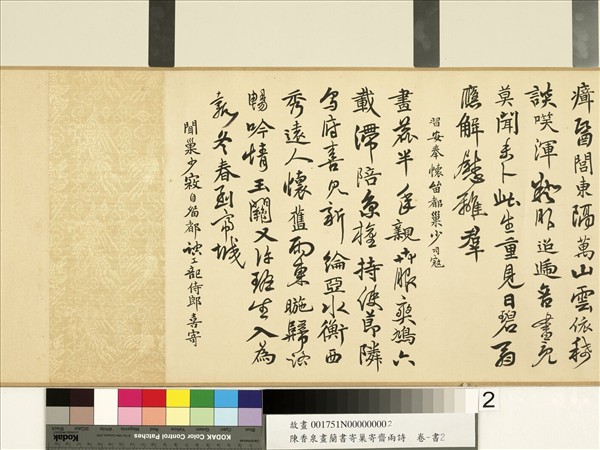 瘴醫閭東隔萬山雲依
談咲渾疑昨追遍音書竟
莫聞未卜此生重見日碧翁
應解慰離羣
習安奉懷留都巢少司寇
畫荔半年親卉服爽鳩六
載滯陪京權持使節隣
烏府喜見新綸亞水衡西
秀遠人懷舊雨東歸路
暢吟情玉關又許班生入為
報冬春到帝城
聞巢少寇自留都被工部侍郎喜寄
2
故畫 001751N000000002
陳香泉畫蘭書寄巢寄齋兩詩 卷-書2
KODAK Color Control Patches
Kodak